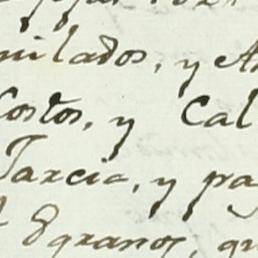 milados, y A
Costos, y Cal
Tarcia, y pa
Egranos, qu